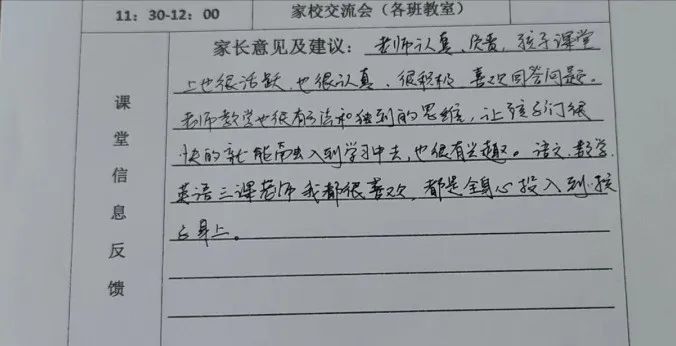 11：30-12：00 家校交流会（各班教室）
家长意见及建议：老师认真、负责，孩子课堂
上也很活跃、也很认真、很积极、喜欢回答问题。
老师教学也很有方法和独到的思维，让孩子们很
快的就能融入到学习中去，也很有兴趣。语文、数学、
英语三课老师我都很喜欢，都是全身心投入到孩
子身上。
课堂信息反馈